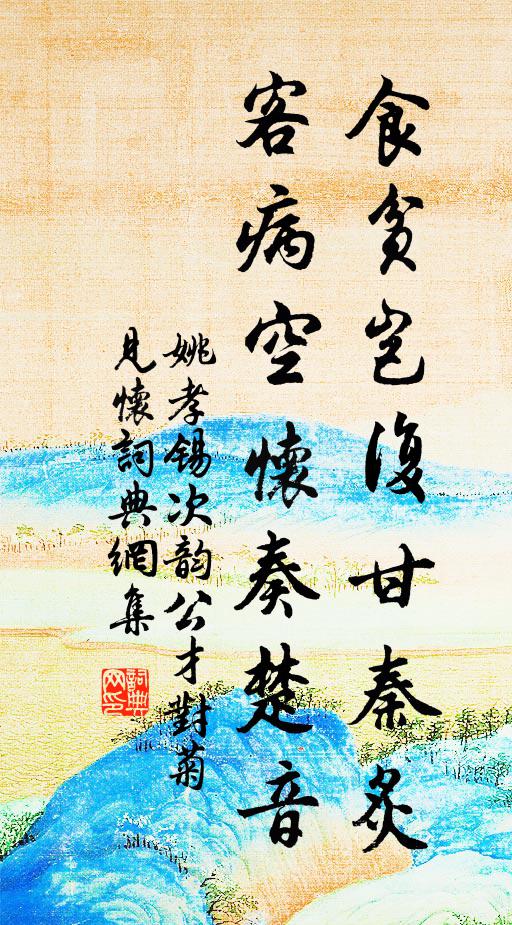 食貧豈復甘秦炙
客病空懷奏楚音
姚孝錫次韵公才對菊
見懷詞典網集
詞典
网印